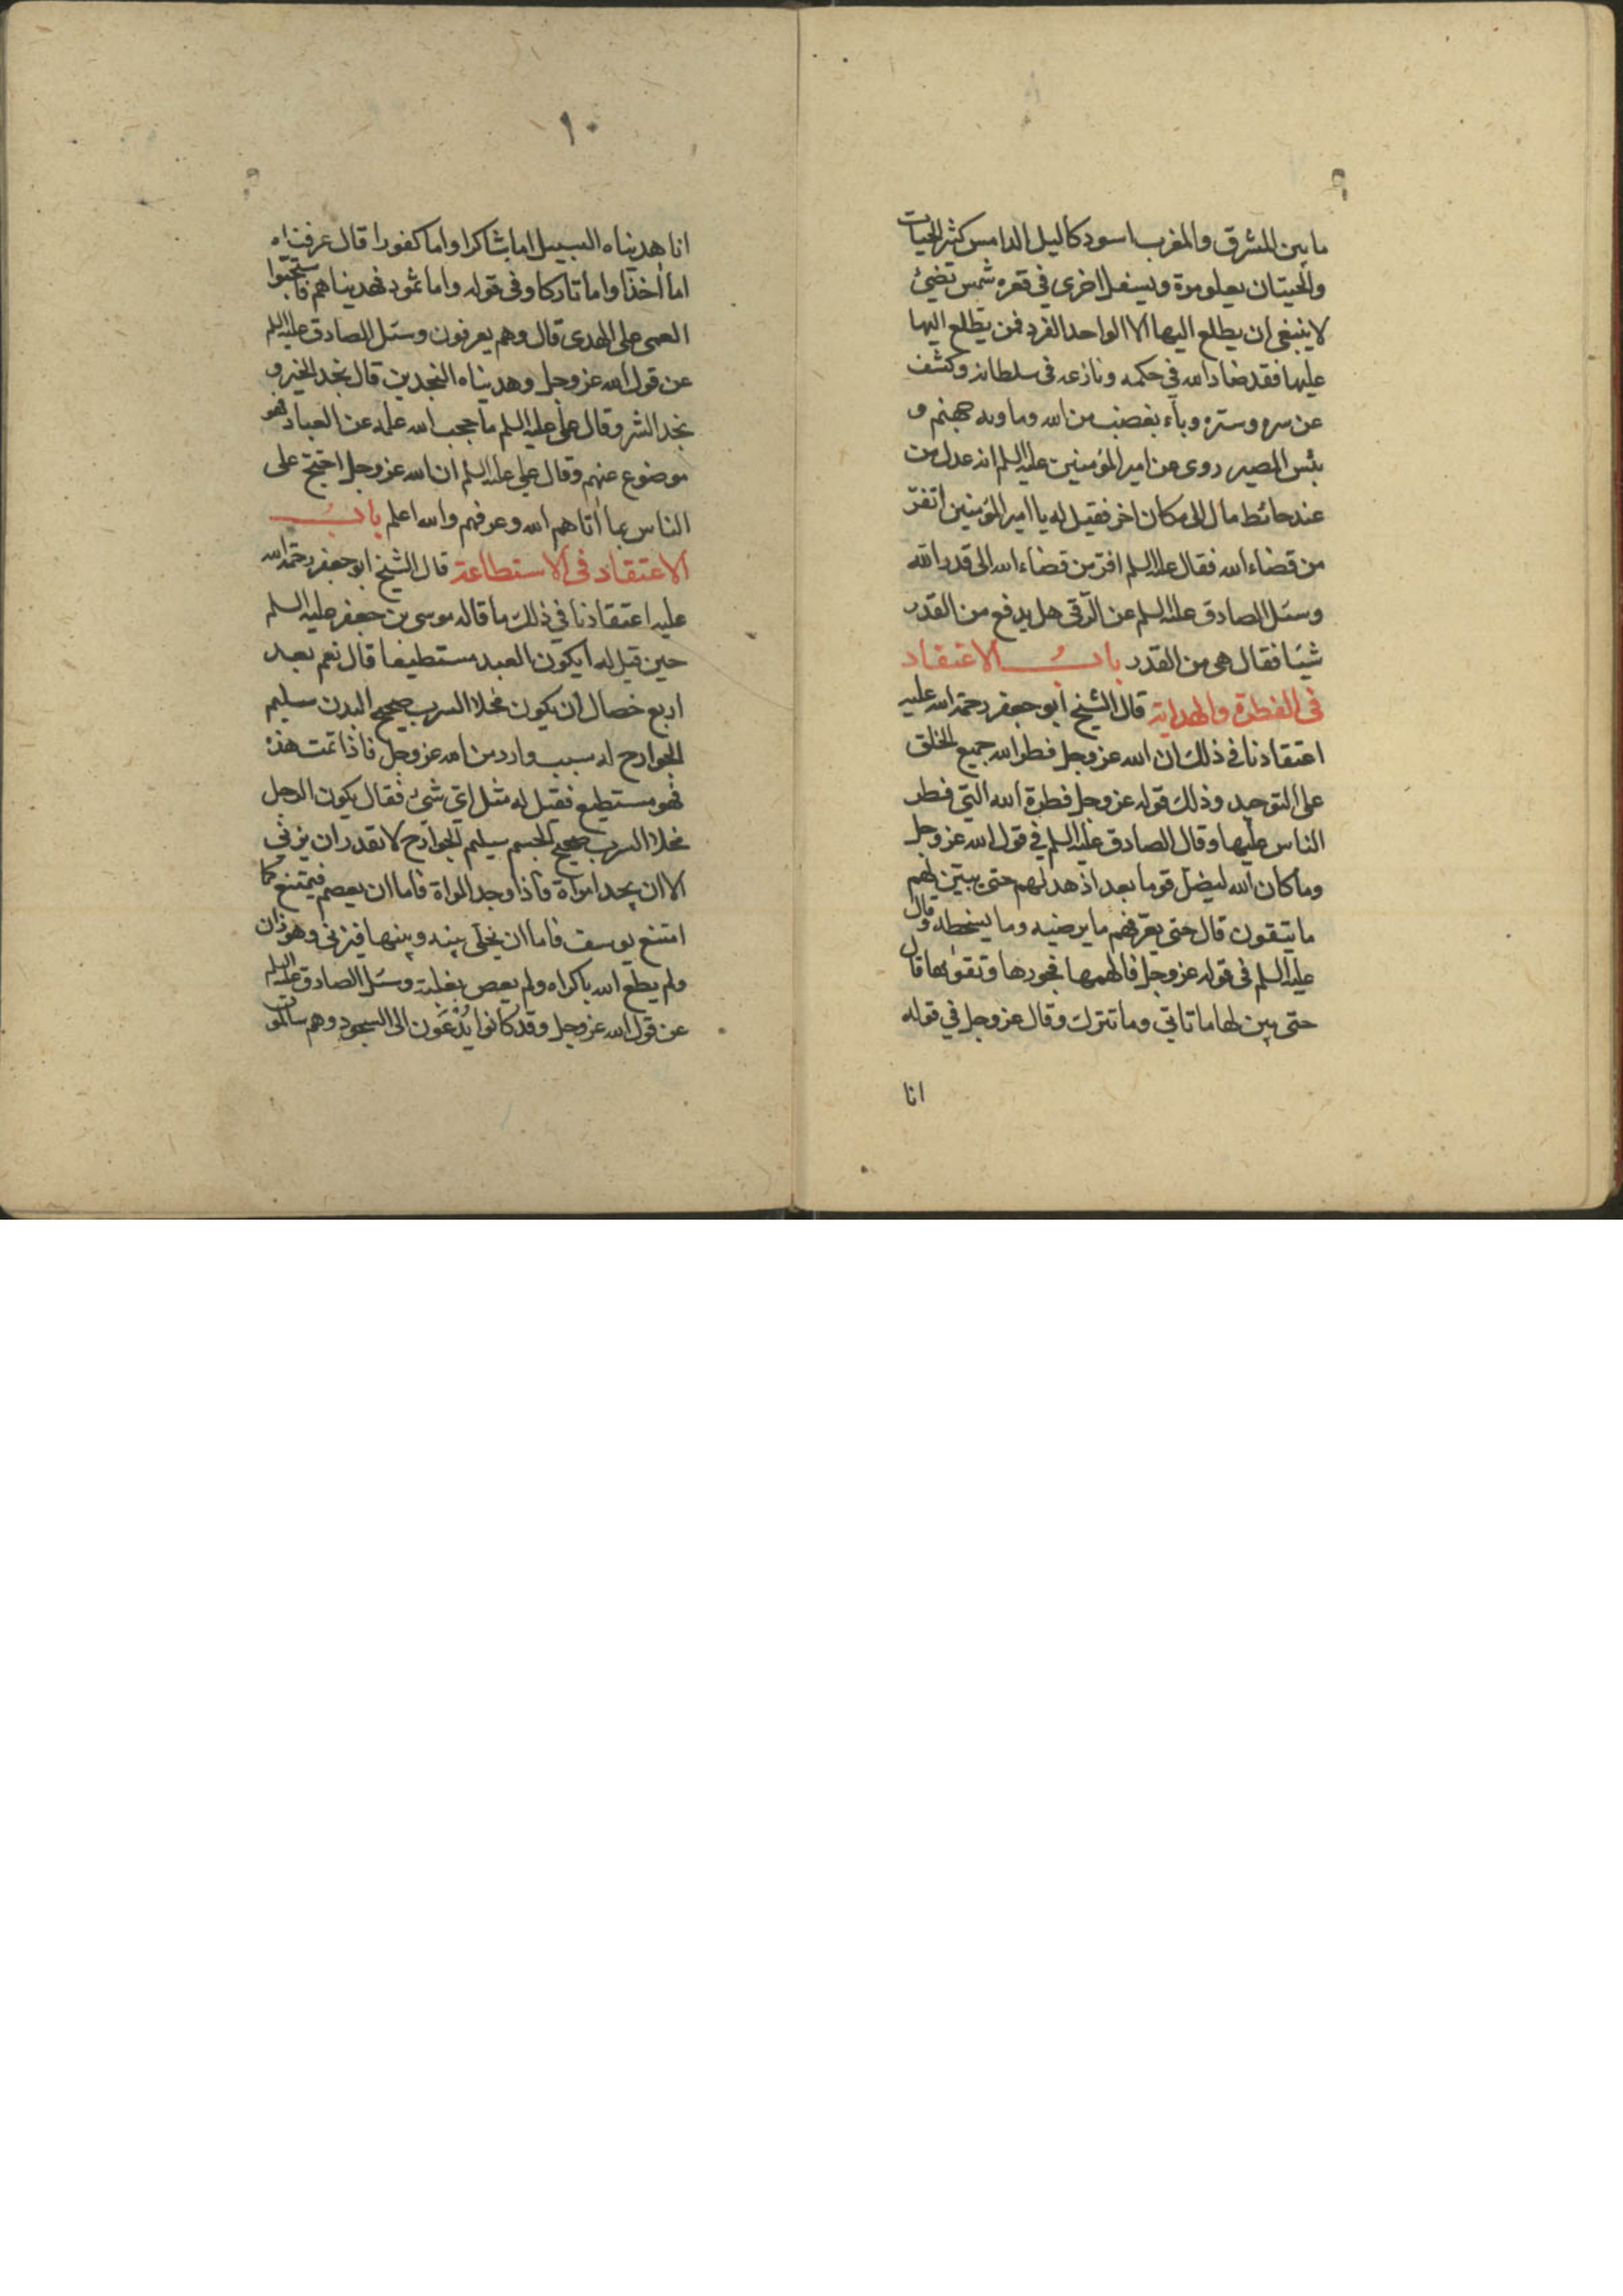 ما بين المشرق والمغرب اسود كالليل الدامس كثير الحيات
والحيتان يعلو مرة ويسفل اخرى في قعره شمس تضئ
لا ينبغى ان يطلع اليها الا الواحد الفرد فمن يطلع اليها
عليها فقد ضاد الله في حكمه ونازعه فى سلطانه وكشف
عن سره وستره وباء بغضب من الله وماويه جهنم و
بئس المصير روى عن امير المؤمنين عليه السلم انه عدل من
عند حائط مال الى مكان اخر فقيل له يا امير المؤمنين اتفرّ
من قضاء الله فقال عليه السلم افر من قضاء الله الى قدر الله
وسئل الصادق عليه السلم عن الرقى هل يدفع من القدر
شيئا فقال هى من القدر باب الاعتقاد
فى الفطرة والهداية قال الشيخ ابو جعفر رحمة الله عليه
اعتقادنا في ذلك ان الله عز وجل فطر الله جميع الخلق
على التوحيد وذلك قوله عز وجل فطرة الله التي فطر
الناس عليها وقال الصادق عليه السلم في قول الله عز وجل
وما كان الله ليضل قوما بعد اذ هديهم حتى يبين لهم
ما يتقون قال حتى يعرفهم ما يرضيه وما يسخطه وقال
عليه السلم فى قوله عز وجل فالهمها فجورها وتقواها قال
حتى بين لها ما تاتي وما تترك وقال عز وجل في قوله
انا
١٠
انا هديناه السبيل اما شاكرا واما كفورا قال عرفناه
اما اخذا واما تاركا وفى قوله واما ثمود فهديناهم فاستحبّوا
العمى على الهدى قال وهم يعرفون وسئل الصادق عليه السلم
عن قول الله عز وجل وهديناه النجدين قال نجد الخير و
نجد الشر وقال على عليه السلم ما حجب الله علمه عن العباد فهو
موضوع عنهم وقال علي عليه السلم ان الله عز وجل احتج على
الناس بما اتاهم الله وعرفهم والله اعلم باب
الاعتقاد فى الاستطاعة قال الشيخ ابو جعفر رحمة الله
عليه اعتقادنا في ذلك ما قاله موسى بن جعفر عليه السلم
حين قيل له ايكون العبد مستطيعا قال نعم بعد
اربع خصال ان يكون مخلا السرب صحيح البدن سليم
الجوارح له سبب وارد من الله عز وجل فاذا تمت هذه
فهو مستطيع فقيل له مثل اي شئ فقال يكون الرجل
مخلا السرب صحيح الجسم سليم الجوارح لا يقدر ان يزني
الا ان يجد امراة فاذا وجد المراة فاما ان يعصم فيمتنع كما
امتنع يوسف فاما ان يخلى بينه وبينها فيزنى وهو زان
ولم يطع الله باكراه ولم يعص بغلبة وسئل الصادق عليه السلم
عن قول الله عز وجل وقد كانوا يُدْعَون الى السجود وهم سالمون